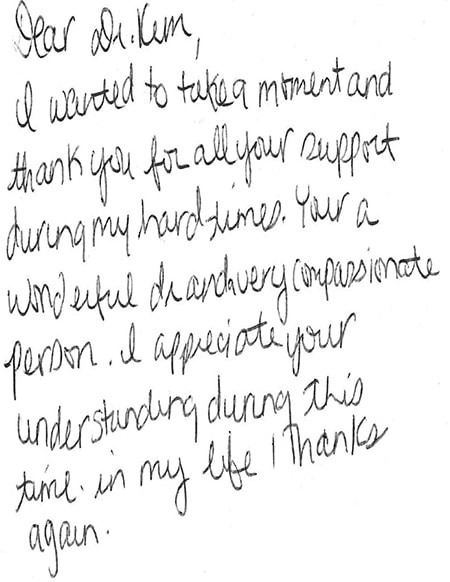 Dear Dr. Kim,
I wanted to take a moment and
thank you for all your support
during my hard times. Your a
wonderful dr and very compassionate
person. I appreciate your
understanding during this
time. in my life! Thanks
again.